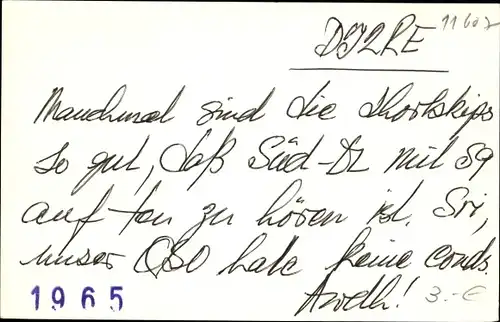 DJ2RE 11602
Manchmal sind die Shortskips
so gut, daß Süd-DL mit S9
auf ten zu hören ist. Sri,
unser QSO hatte keine conds.
Awdh! 3.-€
1965